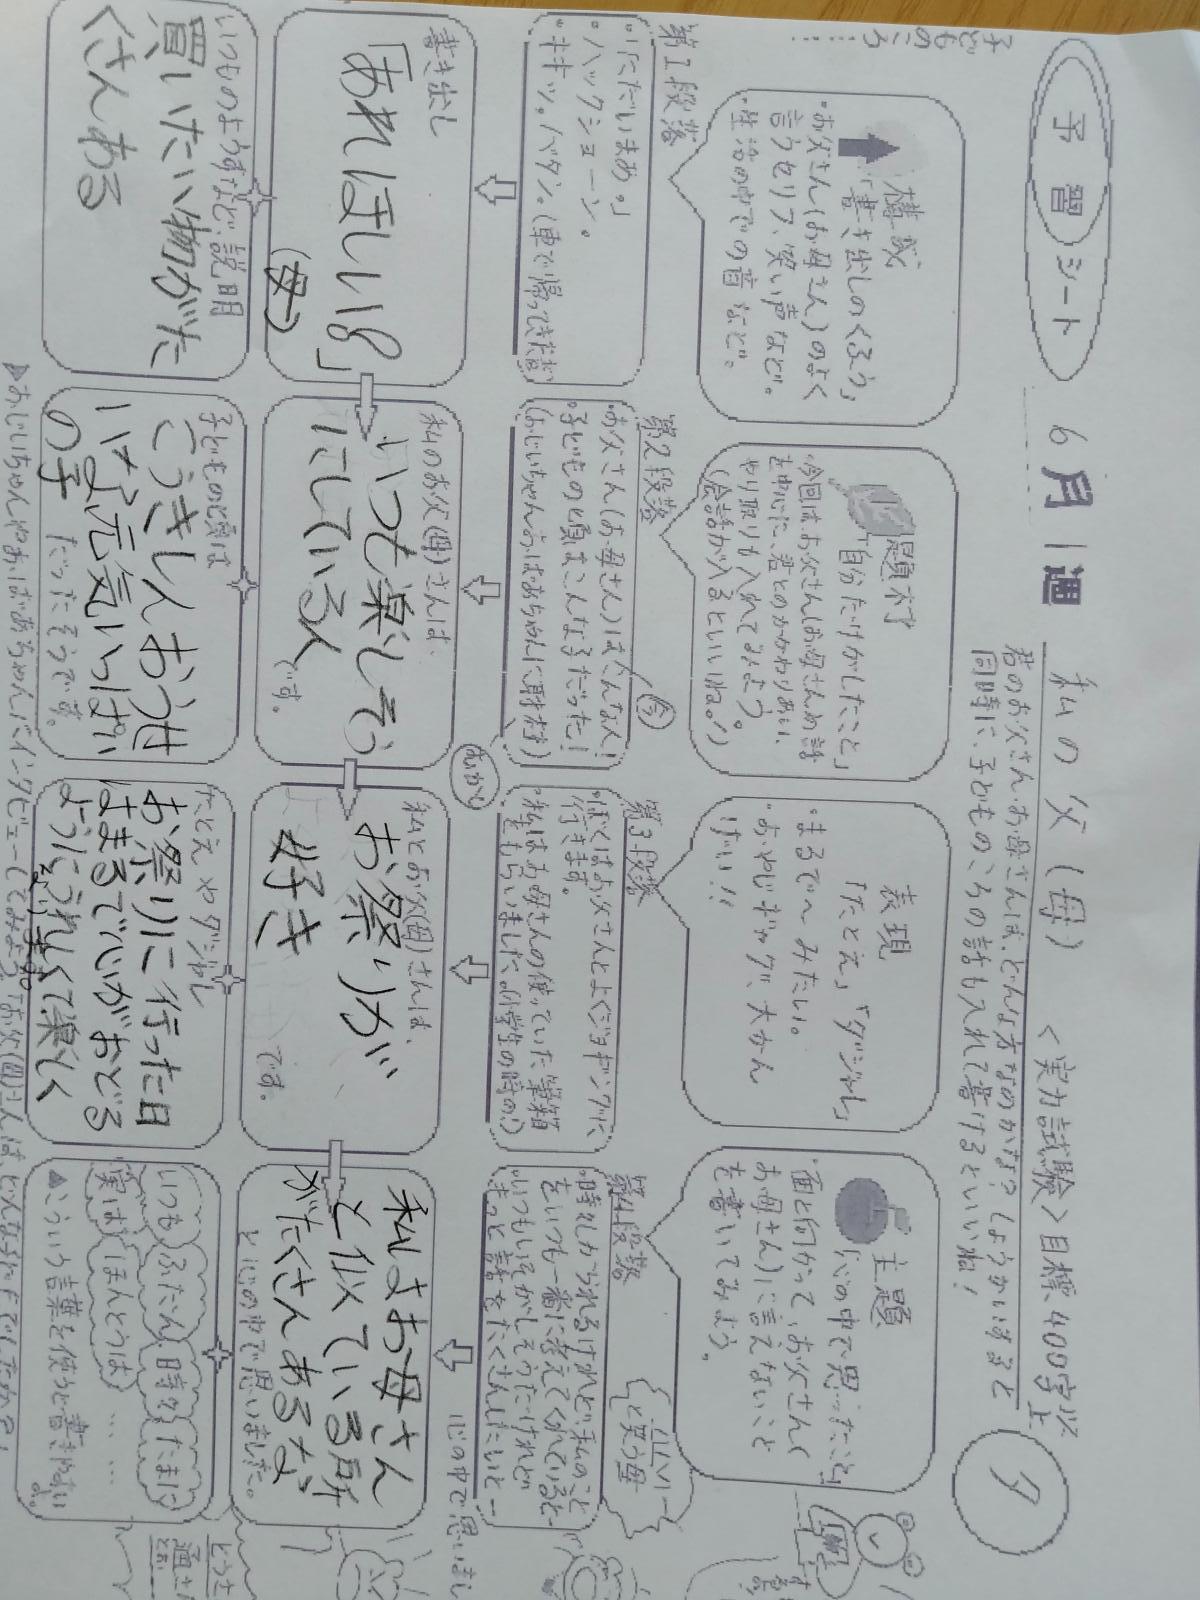 予習シート
6月1週
私の父(母)
<実力試験>目標400字以上
ク
君のお父さん・お母さんは、どんな方なのかな?しょうかいすると
同時に、子どものころの話も入れて書けるといいね!
子どものころ……
構成
「書き出しのくふう」
・お父さん(お母さん)のよく
言うセリフ、笑い声など。
生活の中での音など。
題材
「自分だけがしたこと」
・今回はお父さん(お母さん)の話
を中心に、君とのかかわりあい、
やり取りも入れてみよう。
(会話が入るといいね。!)
表現
「たとえ」「ダジャレ」
・まるで〜みたい。
・おやじギャグ、大かん
げい!!
主題
「心の中で思ったこと」
・面と向かって、お父さん(
お母さん)に言えないこと
を書いてみよう。
第1段落
・「ただいまあ。」
・ハックショーン。
・キキッ。バタン。(車で帰ってきた音)
第2段落
・お父さん(お母さん)はこんな人!
・子どもの頃はこんな子だった!
(おじいちゃんおばあちゃんに取材)
今
第3段落
・ぼくはお父さんとよくジョギングに
行きます。
・私はお母さんの使っていた筆箱
をもらいました。(小学生の時の!)
第4段落
・時々しかられるけれど、私のこと
をいつも一番に考えてくれていると…
・いつもいそがしそうだけれど
もっと話をたくさんしたいと…
と笑う母
心の中で思いまし
書き出し
「あれほしい!」
(母)
私のお父(母)さんは、
いつも楽しそう
にしている人
です。
むかし
私とお父(母)さんは、
お祭りが
好き
です。
私はお母さん
と似ている所
がたくさんあるな
と心の中で思いました。
いつものようすなど、説明
買いたい物がた
くさんある
子どもの頃は
こうきしんおう世
いな元気いっぱい
の子
だったそうです。
たとえやダジャレ
お祭りに行った日
はまるで心がおどる
ようにうれしくて楽しく
いつも ふだん 時々 たまに
実は ほんとうは … …
▲こういう言葉を使うと書きやすい
よ。
▲おじいちゃんやおばあちゃんにインタビューしてみよう。「お父(母)さんは、どんな子だったでしたか?」